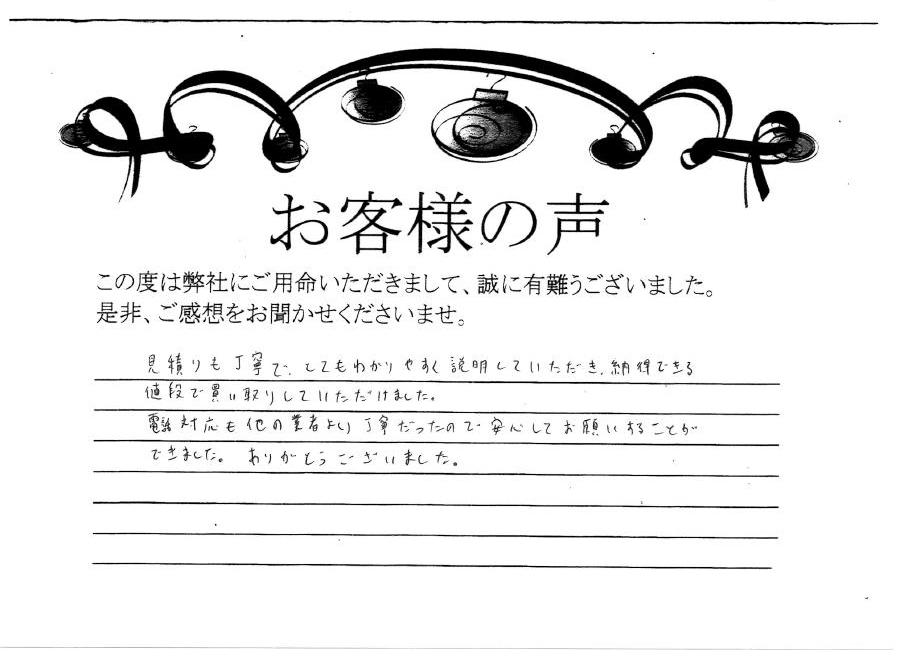 お客様の声
この度は弊社にご用命いただきまして、誠に有難うございました。
是非、ご感想をお聞かせくださいませ。
見積りも丁寧で、とてもわかりやすく説明していただき、納得できる
値段で買い取りしていただけました。
電話対応も他の業者より丁寧だったので安心してお願いすることが
できました。ありがとうございました。